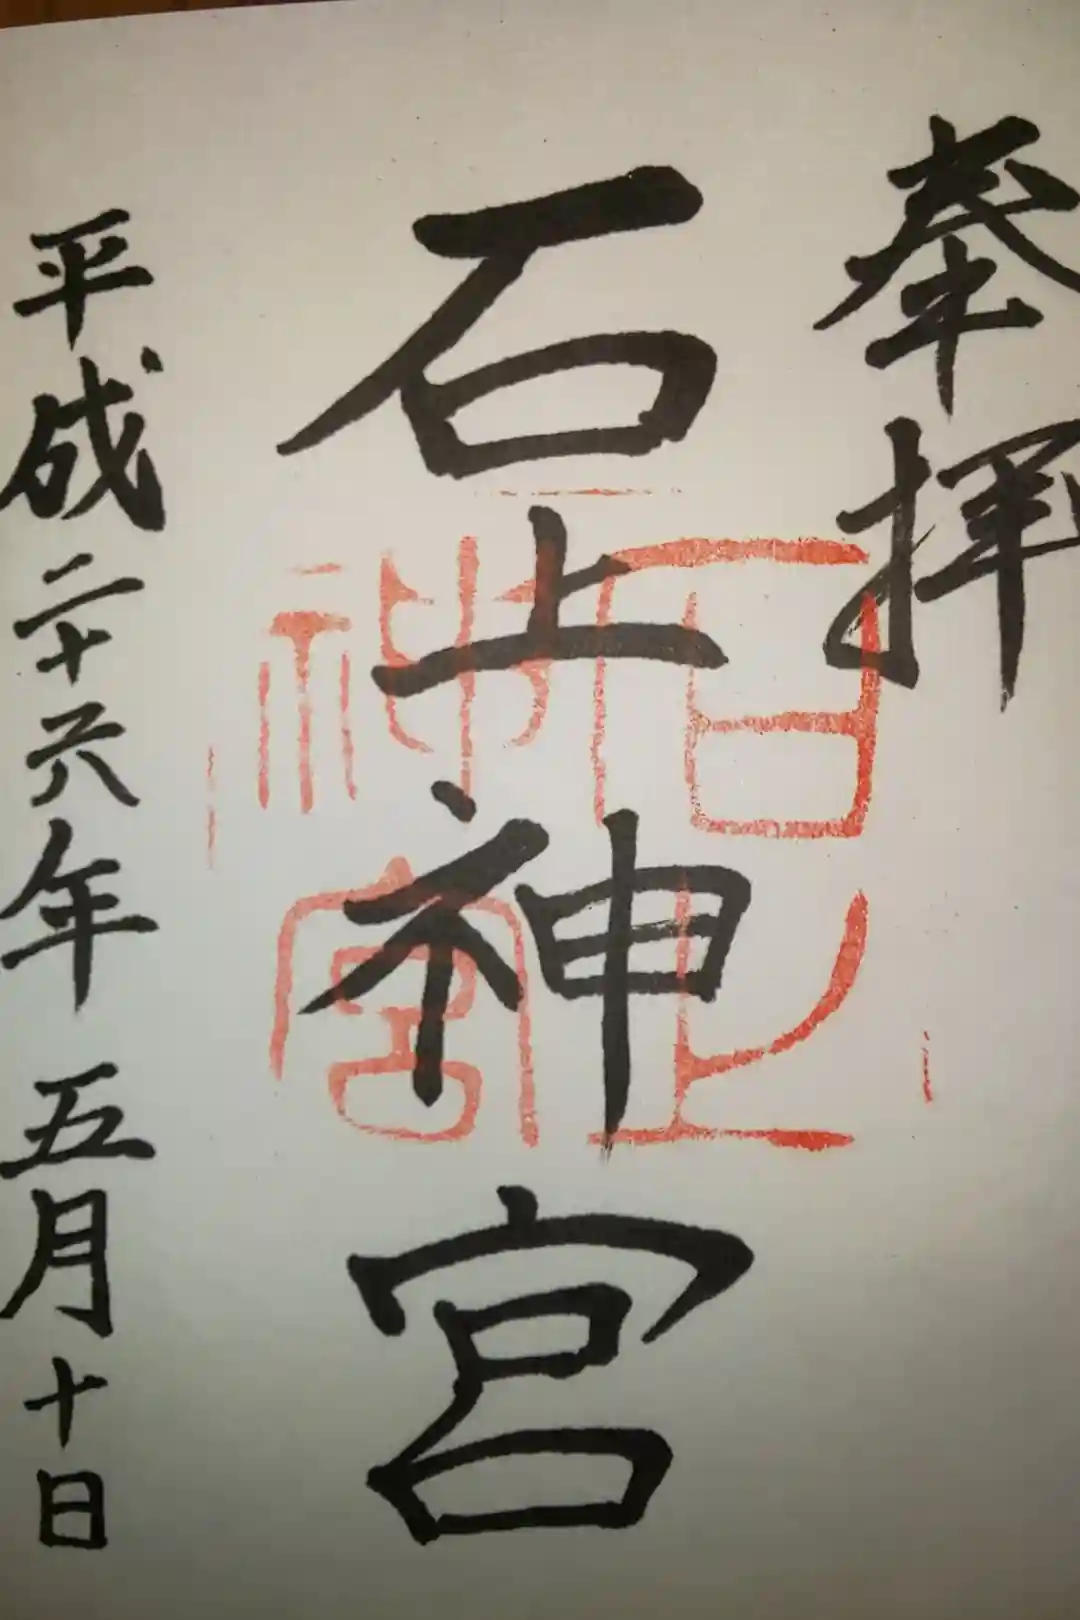 奉拝
石上神宮
石上神宮
平成二十六年五月十日